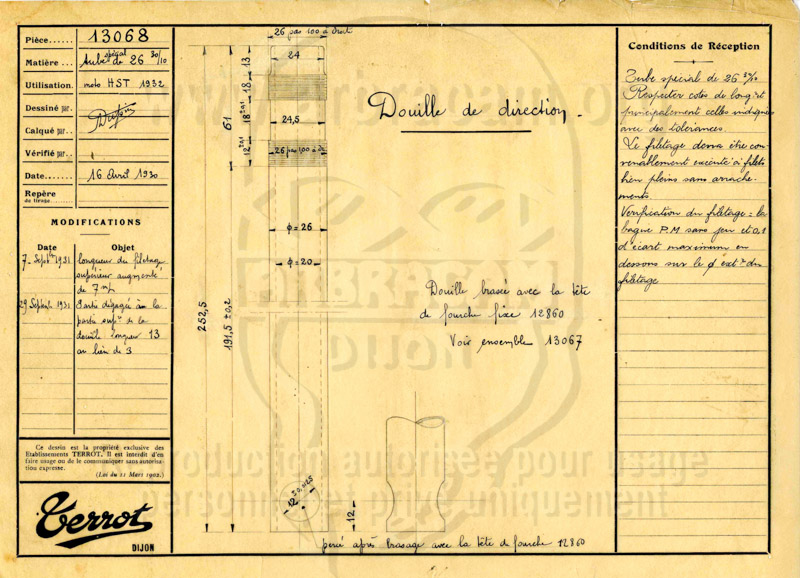 Pièce...... 13068
Matière... Tube spécial de 26 30/10
Utilisation. moto HST 1932
Dessiné par.
Calqué par..
Vérifié par..
Date....... 16 Avril 1930
Repère
de tirage.
MODIFICATIONS
Date Objet
7 Septbre 1931 longueur de filetage
supérieur augmenté
de 7 m/m
29 Septembre 1931 Partie dégagée à la
partie supre de la
douille longueur 13
au lieu de 3
Ce dessin est la propriété exclusive des
Etablissements TERROT. Il est interdit d'en
faire usage ou de le communiquer sans autorisa-
tion expresse.
(Loi du 11 Mars 1902.)
Terrot
DIJON
26 pas 100 à droite
24
13
18
18 ±0,1
61
24,5
12 ±0,1
26 pas 100 à dr.
ϕ = 26
ϕ = 20
252,5
191,5 ±0,2
12 ±0,025
12
Douille de direction
Douille brasée avec la tête
de fourche fixe 12860
Voir ensemble 13067
percé après brasage avec la tête de fourche 12860
Conditions de Réception
Tube spécial de 26 30/10
Respecter cotes de longr et
principalement celles indiquées
avec des tolérances.
Le filetage devra être con-
venablement exécuté à filets
bien pleins sans arrache-
ments.
Vérification du filetage = la
bague P.M sans jeu et 0,1
d'écart maximum en
dessous sur le ϕ extr du
filetage
www.artbracam.
ARBRACAM
DIJON
Reproduction autorisée pour usage
personnel et privé uniquement